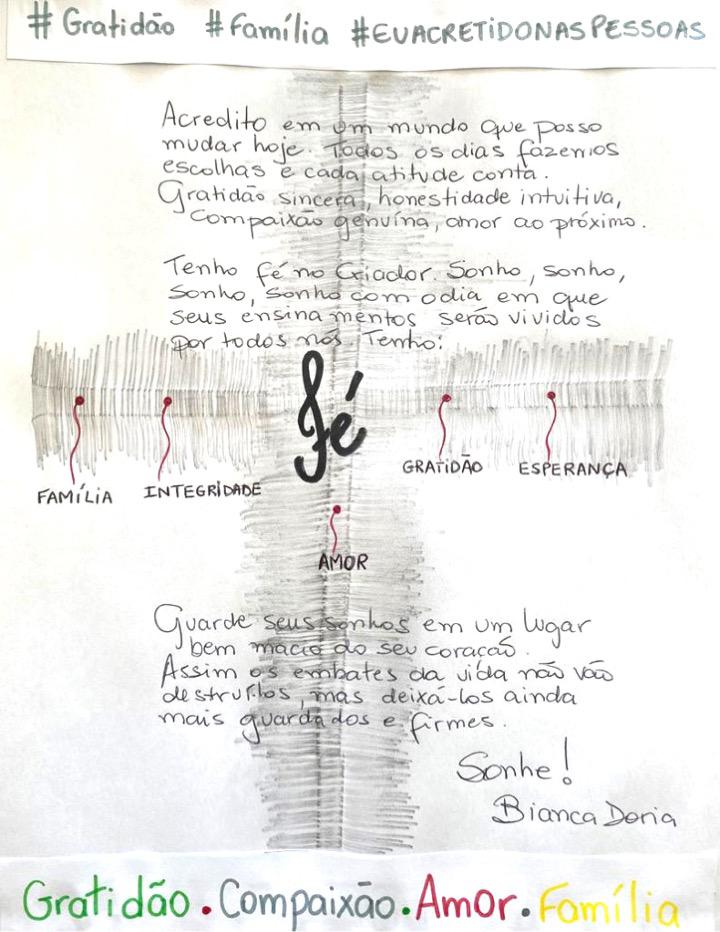 # Gratidão # família #EUACRETIDONASPESSOAS
Acredito em um mundo que posso
mudar hoje. Todos os dias fazemos
escolhas e cada atitude conta.
Gratidão sincera, honestidade intuitiva,
compaixão genuína, amor ao próximo.
Tenho fé no Criador. Sonho, sonho,
sonho, sonho com o dia em que
seus ensinamentos serão vividos
por todos nós. Tenho:
fé
GRATIDÃO ESPERANÇA
FAMÍLIA INTEGRIDADE
AMOR
Guarde seus sonhos em um lugar
bem macio do seu coração.
Assim os embates da vida não vão
destruí-los, mas deixá-los ainda
mais guardados e firmes.
Sonhe!
Bianca Doria
Gratidão . Compaixão . Amor . Família